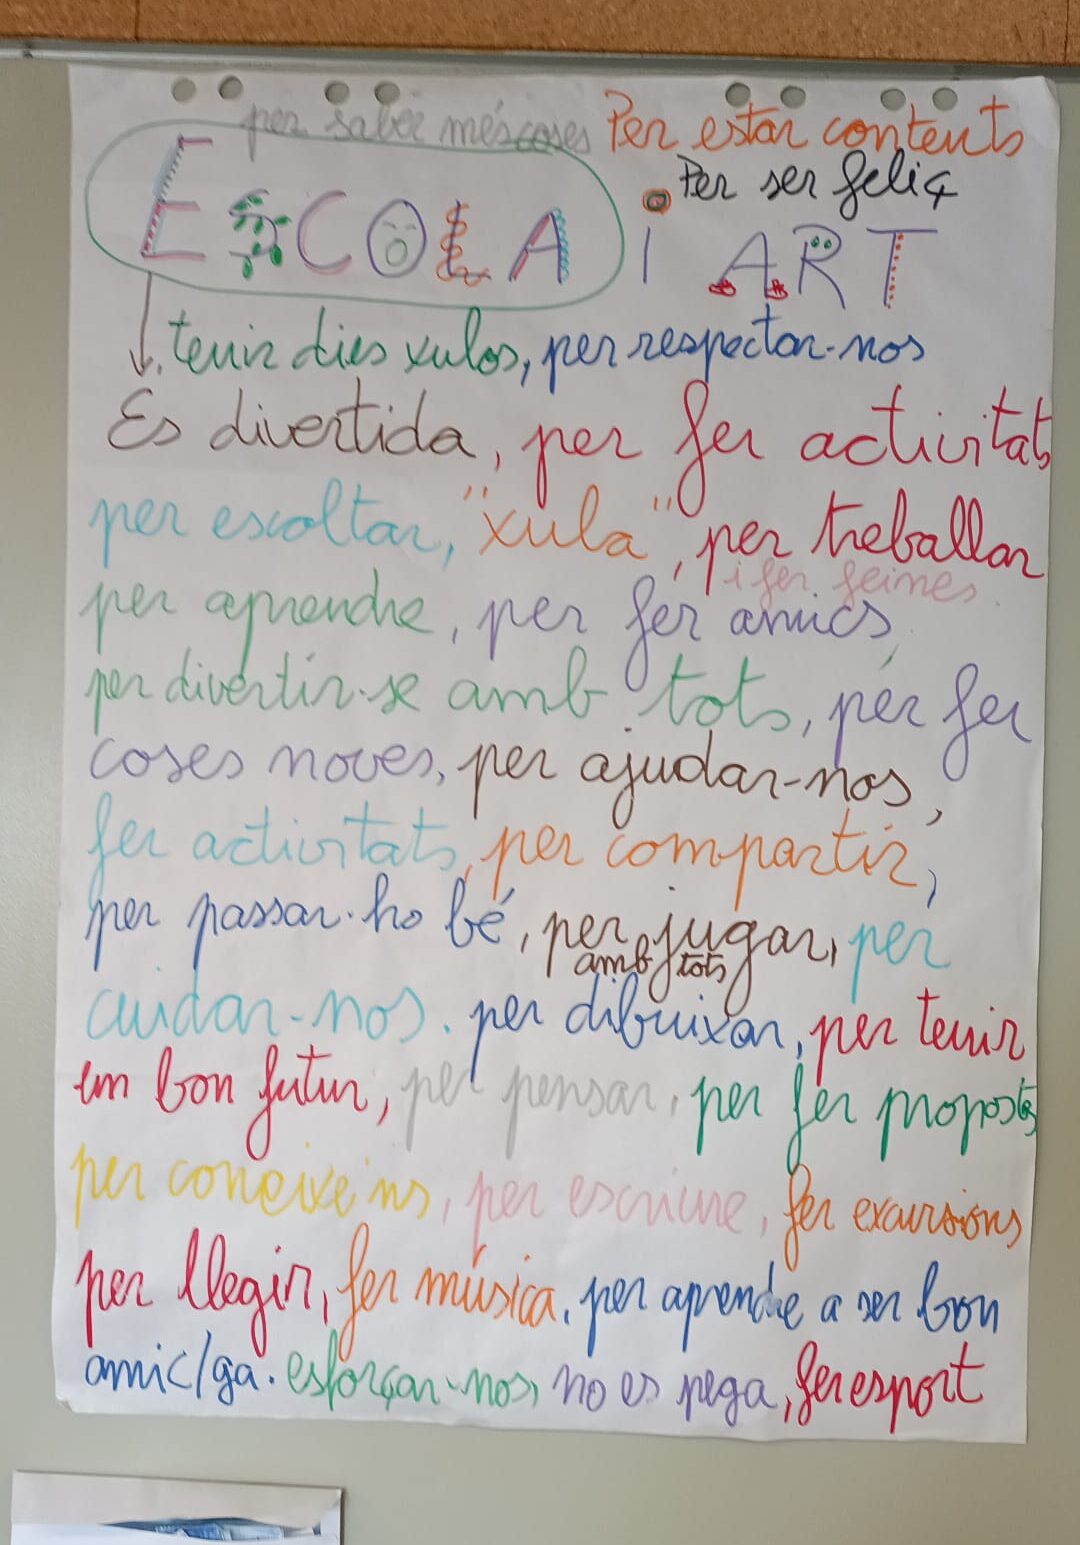 per saber més coses Per estar contents
Per ser feliç
ESCOLA i ART
tenir dies xulos, per respectar-nos
Es divertida, per fer activitats
per escoltar, "xula", per treballar
i fer feines.
per aprendre, per fer amics,
per divertir-se amb tots, per fer
coses noves, per ajudar-nos,
fer activitats, per compartir,
per passar-ho bé, per jugar, per
amb tots
cuidar-nos. per dibuixar, per tenir
un bon futur, per pensar, per fer propostes
per coneixe'ns, per escriure, fer excursions
per llegir, fer música, per aprendre a ser bon
amic/ga. esforçar-nos, no es pega, fer esport